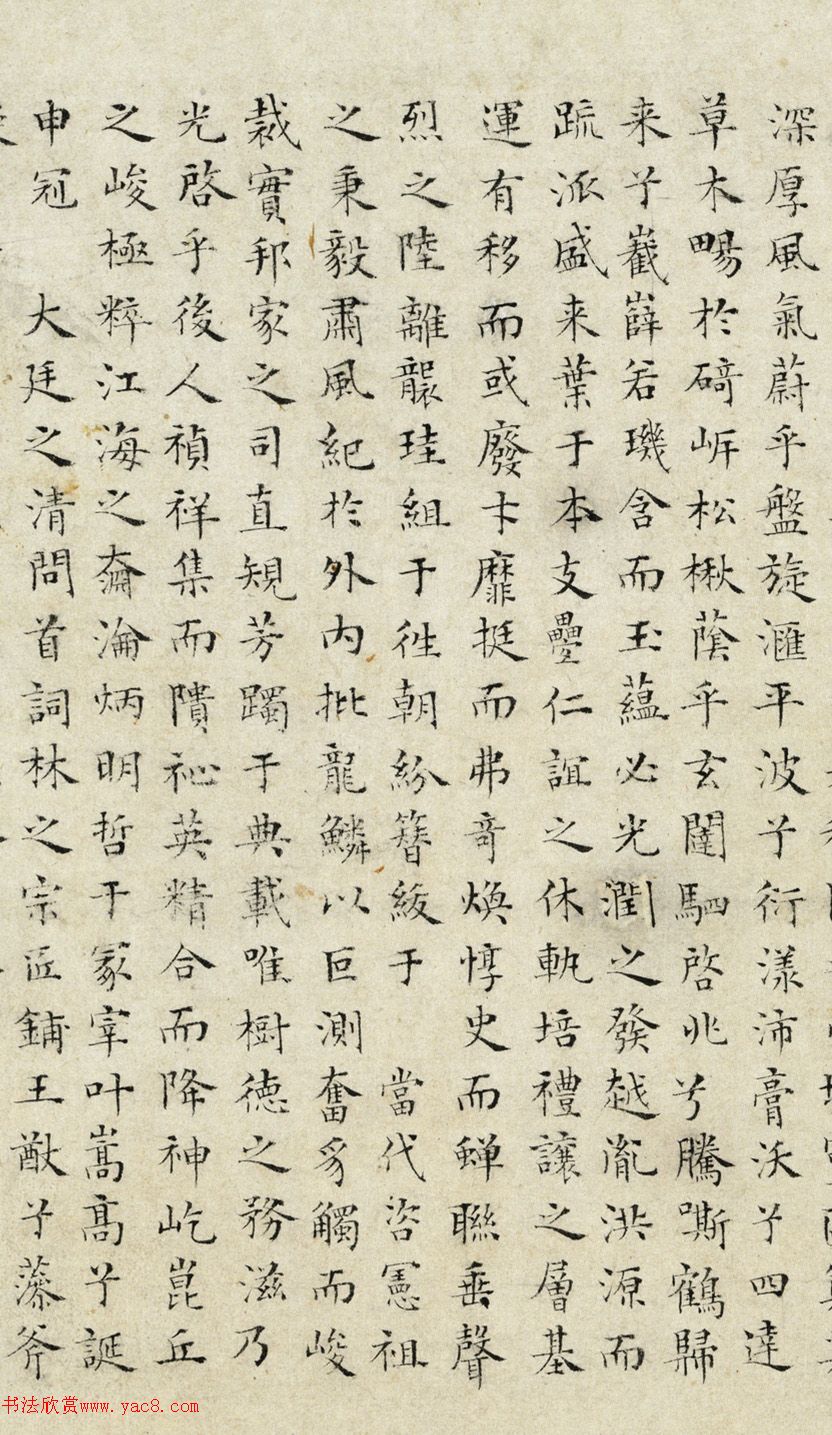 深厚風氣蔚乎盤旋滙平波兮衍漾沛膏沃兮四達
草木暘於碕岸松楸蔭乎玄闥駟啓兆兮騰嘶鶴歸
来兮嶻嶭若璣含而玉蘊必光潤之發越胤洪源而
疏派盛来葉于本支疊仁誼之休軌培禮讓之層基
運有移而或廢卞靡挺而弗奇煥惇史而蟬聯垂聲
烈之陸離襲珪組于往朝紛簪紱于 當代咨憲祖
之秉毅肅風紀於外內批龍鱗以叵測奮豸觸而峻
裁實邦家之司直規芳躅于典載唯樹德之務滋乃
光啓乎後人禎祥集而隤祉英精合而降神屹崑丘
之峻極粹江海之奫淪炳明哲于冢宰叶嵩髙兮誕
申冠 大廷之清問首詞林之宗匠鋪王猷兮藻斧
书法欣赏www.yac8.com